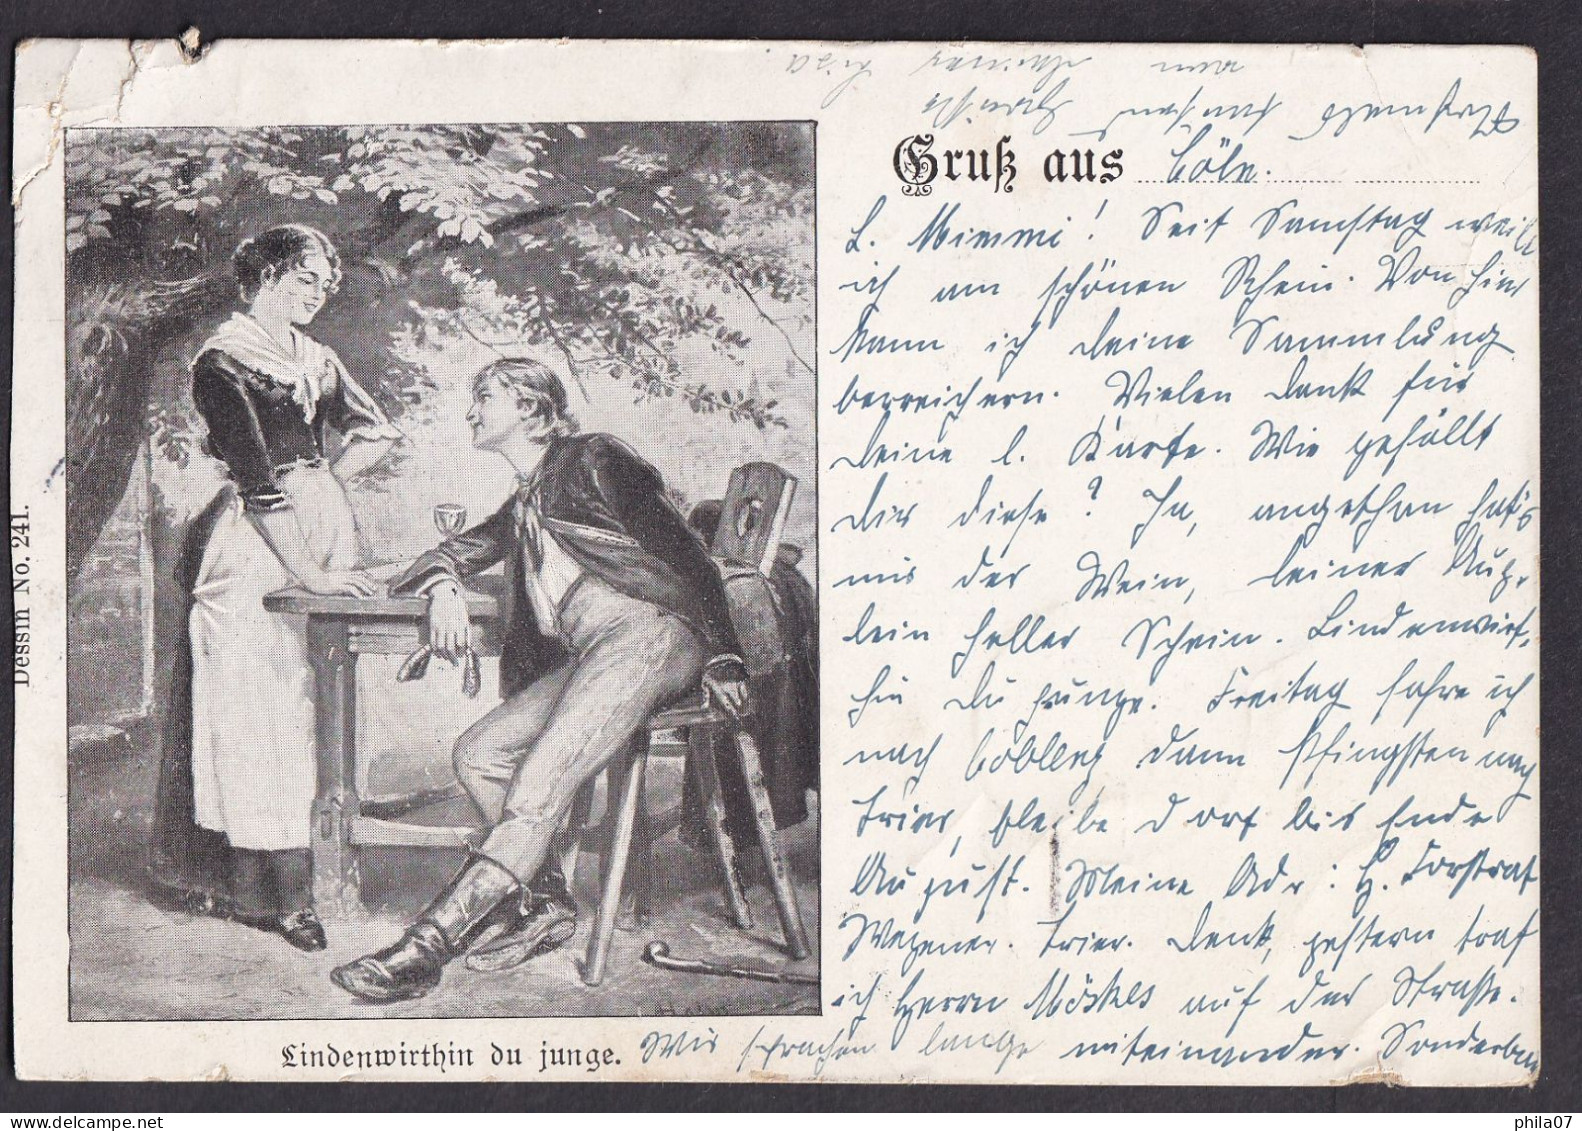 Gruß aus Cöln.
L. Mimmi! Seit Samstag weile
ich am schönen Rhein. Von hier
kann ich deine Sammlung
bereichern. Vielen Dank für
deine l. Karte. Wie gefällt
dir diese? Ja, angethan hat's
mir der Wein, deiner Äug-
lein heller Schein. Lindenwirt-
hin du junge. Freitag fahre ich
nach Coblenz dann Pfingsten nach
Trier, bleibe dort bis Ende
August. Meine Adr: H. Forstrat
Wegener. Trier. Denk, gestern traf
ich Herrn Möskes auf der Straße.
Wir sprachen lange miteinander. Sonderbar
Lindenwirthin du junge.
Dessin No. 241.
phila07